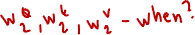 w₂^Q, w₂^k, w₂^v - when?